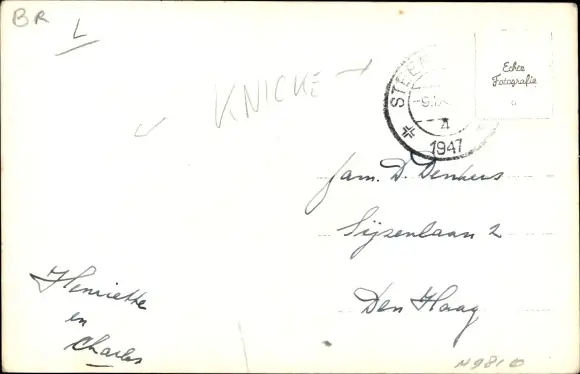 BR
L
KNICKE
STEE
1947
Echte
Fotografie
Fam. D. Denkers
Sijzenlaan 2
Den Haag
Henriette
en
Charles